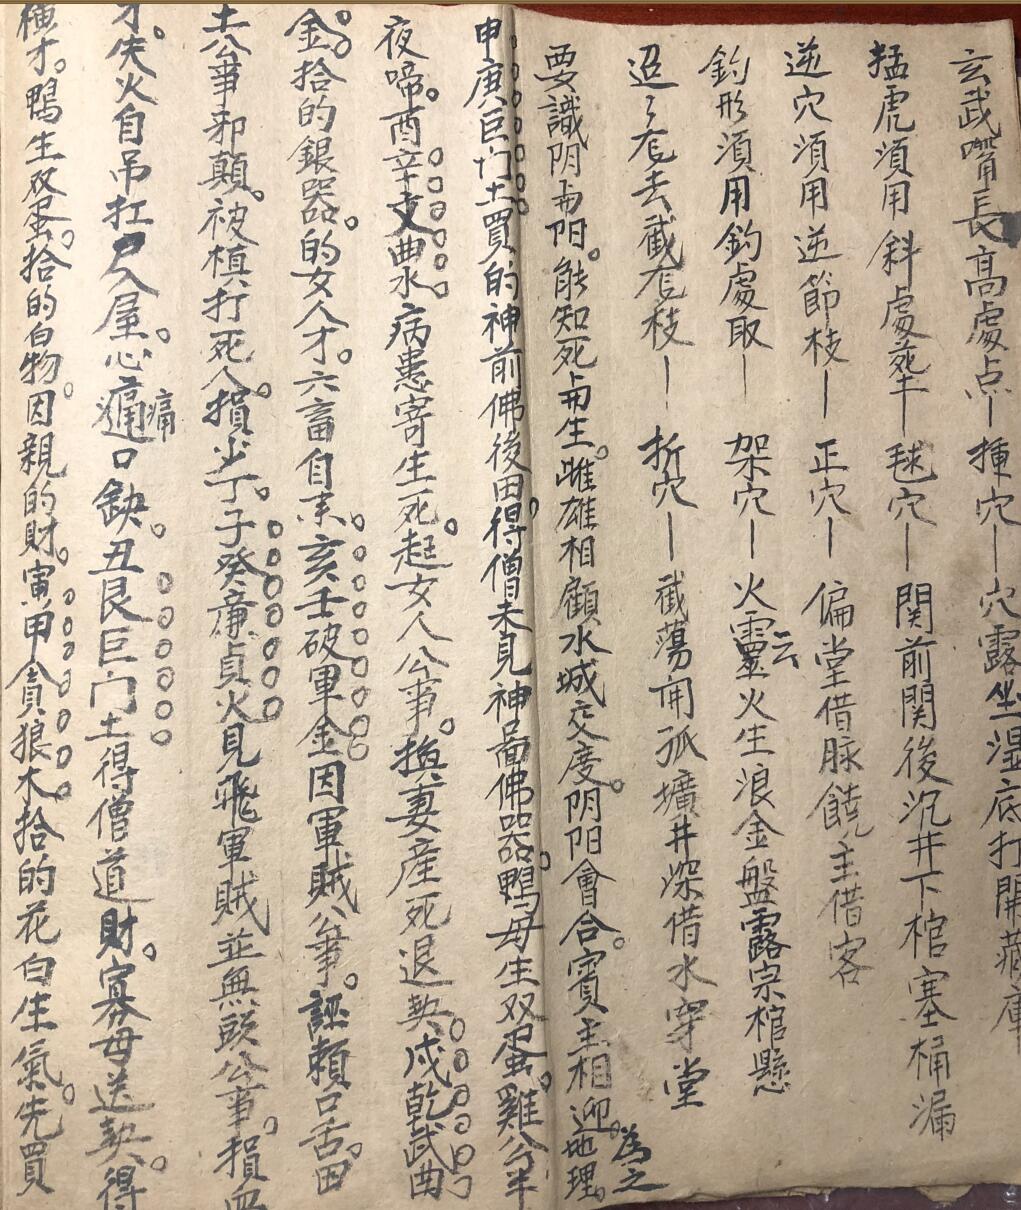 玄武嘴長高處点丨插穴丨穴露坐濕底打開藏庫
猛虎須用斜處塟丨毬穴丨関前関後沉井下棺塞桶漏
逆穴須用逆節枝丨正穴丨偏堂借脉饒主借客
釣形須用釣處取丨架穴丨火靈云火生浪金盤露宗棺懸
迢々左去截左枝丨折穴丨截蕩開孤壙井深借水穿堂
要識阴與阳。能知死與生。雌雄相顧水城交度。阴阳會合。賓主相迎。為之地理。
申庚巨门土買的神前佛後田。得僧未見神啚佛器。鴨母生双蛋。雞公半
夜啼。酉辛文曲水病患寄生死。起女人公事。換妻産死退契。戍乾武曲
金。拾的銀器。的女人才。六畜自来。亥壬破軍金因軍賊公事。誣賴口舌。田
土公事邪顛。被槙打死人。損少丁。子癸廉貞火見飛軍賊並無頭公事。損血
才。失火自吊扛尸入屋。心痛口缺。丑艮巨门土得僧道財。寡母送契。得
橫才。鴨生双蛋。拾的白物。因親的財。寅甲貪狼木拾的花白生氣。先買